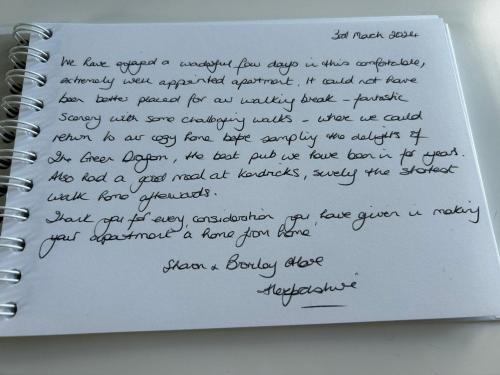 3rd March 2024
We have enjoyed a wonderful few days in this comfortable,
extremely well appointed apartment. It could not have
been better placed for our walking break - fantastic
scenery with some challenging walks - where we could
return to our cosy home before sampling the delights of
The Green Dragon, the best pub we have been in for years.
Also had a good meal at Kendricks, surely the shortest
walk home afterwards.
Thank you for every consideration you have given in making
your apartment a 'home from home'
Sharon &
Hertfordshire